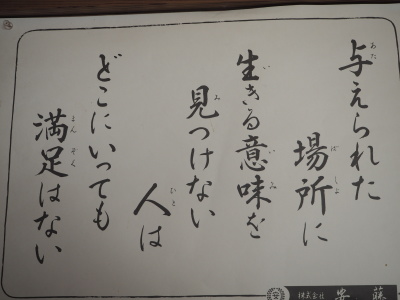 与えられた
場所に
生きる意味を
見つけない
人は
どこにいっても
満足はない
株式会社 安藤